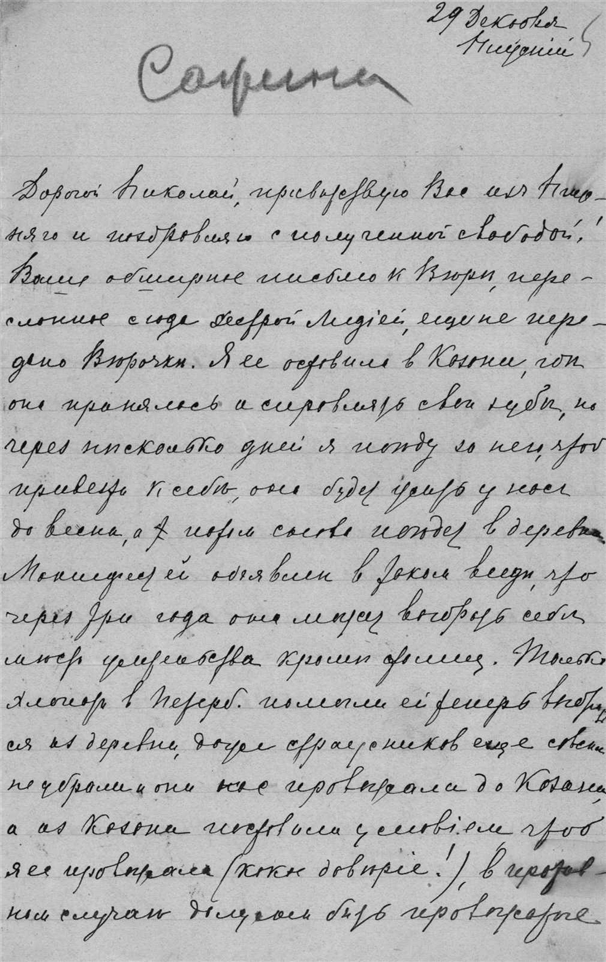 29 Декабря
Нижній
Сажина
Дорогой Николай, привѣтствую Вас изъ Ниж-
няго и поздравляю с полученной свободой!
Ваше обширное письмо к Вѣрѣ, пере-
сланное сюда сестрой Лидіей, еще не пере-
дано Вѣрочкѣ. Я ее оставила в Казани, гдѣ
она принялась исправлять свои зубы, но
через нѣсколько дней я поѣду за ней, чтоб
привезти к себѣ, она будет жить у нас
до весны, а потом снова поѣдет в деревню.
Манифест ей объявлен в таком видѣ, что
через три года она может выбрать себѣ
мѣсто жительства кромѣ столиц. Только
хлопоты в Петерб. помогли ей теперь выбрать
ся из деревни, даже стражников еще совсѣм
не убрали и они нас провожали до Казани,
а из Казани поставили условіем чтоб
я ее провожала (какое довѣріе!), в против-
ном случаѣ должны быть провожатые